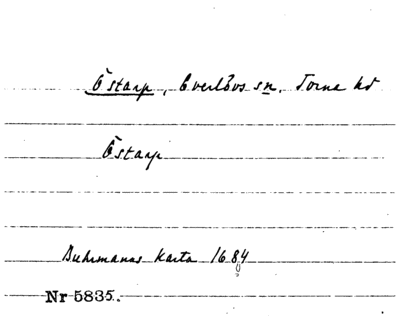 Östarp, Everlövs sn, Torna hd
Östarp
Buhrmans karta 1684
Nr 5835.